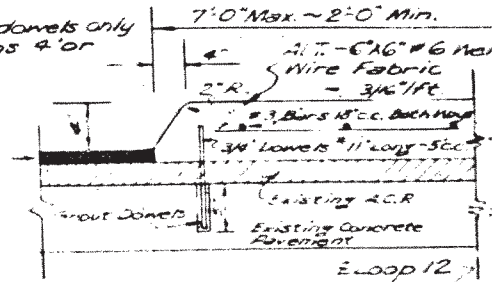 dowels only
ns 4' or
7'-0" Max. ~ 2'-0" Min.
4"
ALT. - 6"x6" #6
Wire Fabric
2" R.
- 3/16"/ft.
#3 Bars 18" c.c. Both Way
3/4" Dowels 11" Long - 5' c.c.
Existing A.C.P.
Grout Dowels
Existing Concrete
Pavement
Loop 12